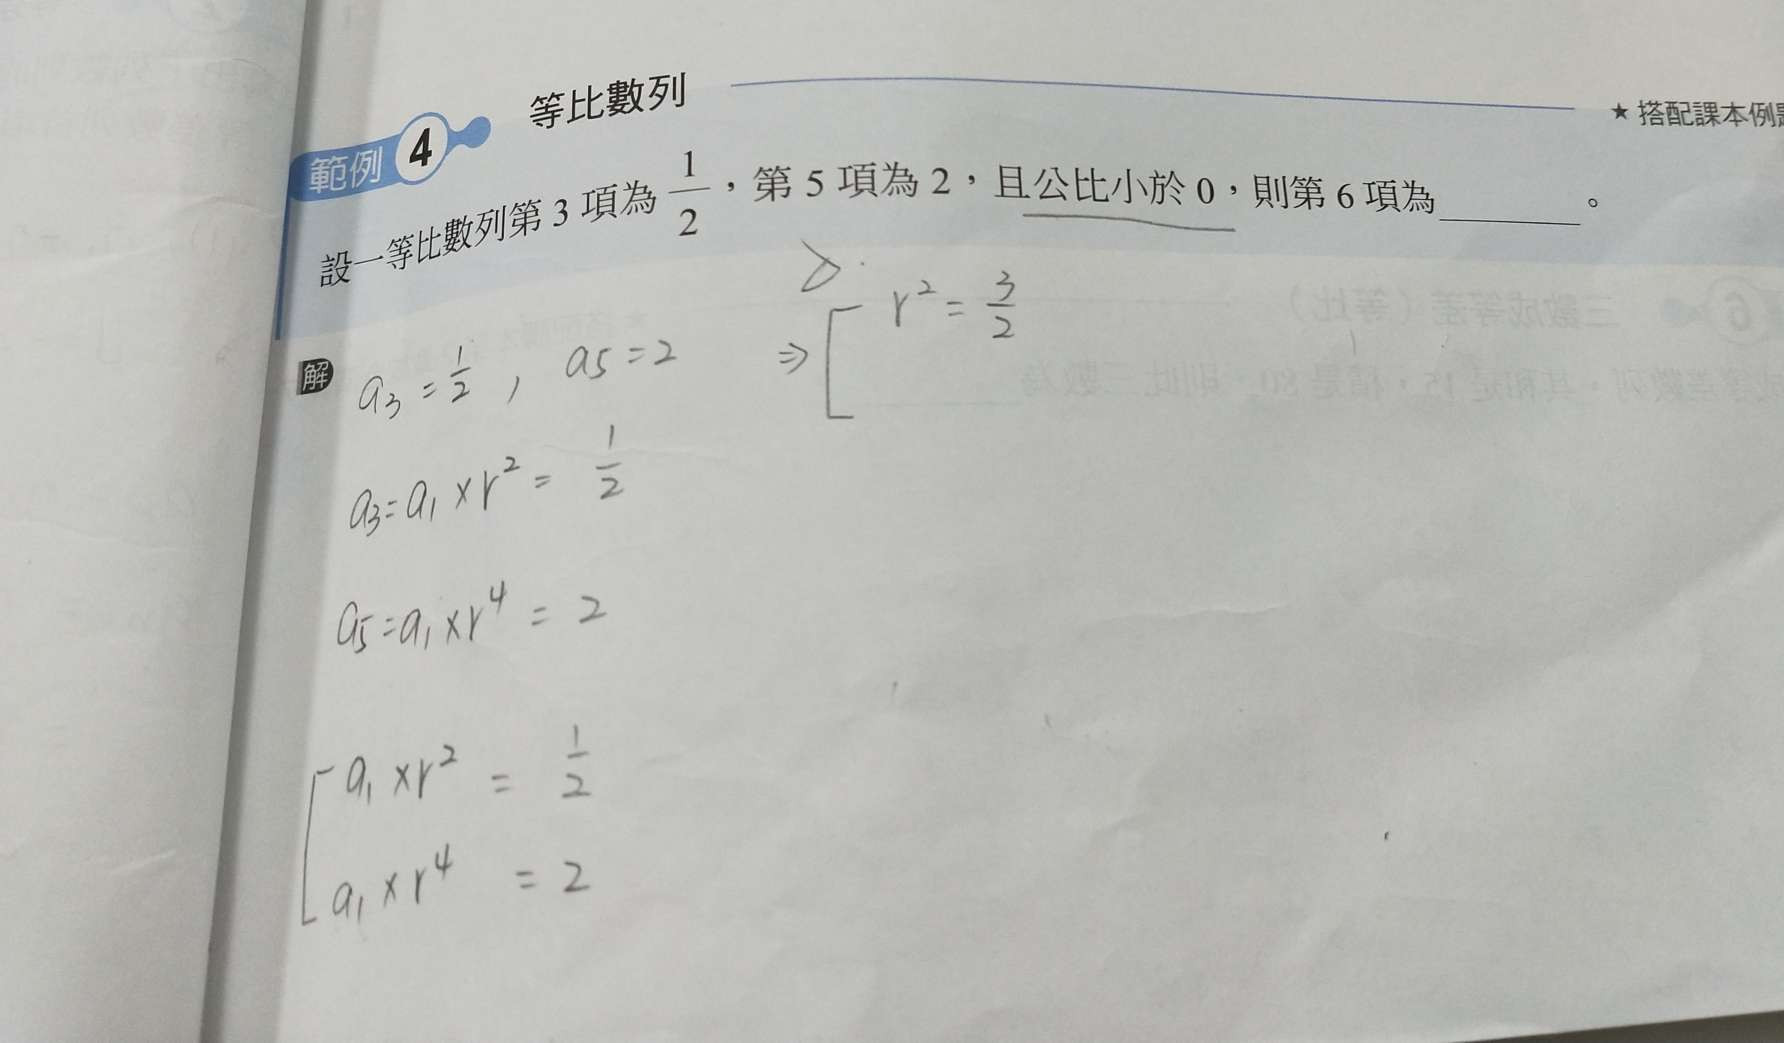 範例 4 等比數列
★ 搭配課本例
設一等比數列第 3 項為 1/2，第 5 項為 2，且公比小於 0，則第 6 項為______。
解 a₃ = 1/2 , a₅ = 2 ⇒ [ r² = 3/2
a₃ = a₁ × r² = 1/2
a₅ = a₁ × r⁴ = 2
[ a₁ × r² = 1/2
a₁ × r⁴ = 2